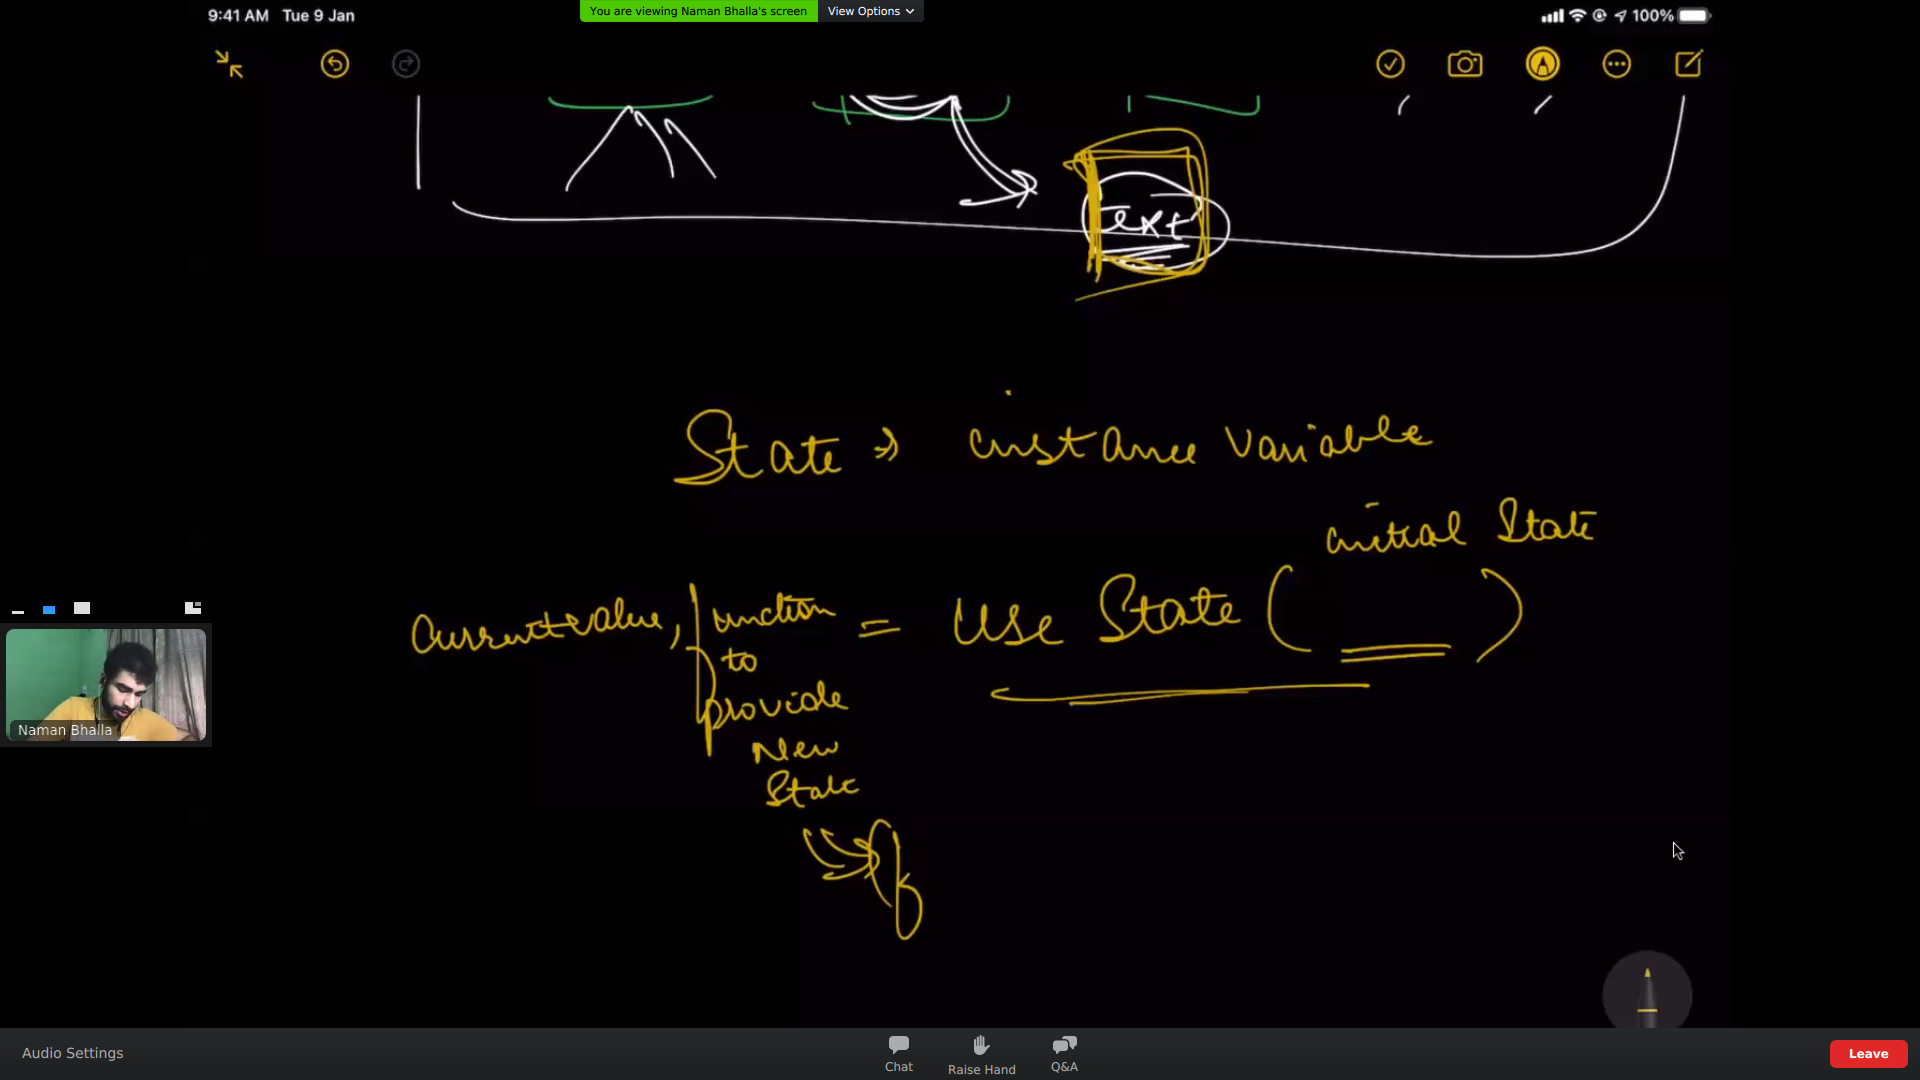 9:41 AM Tue 9 Jan
You are viewing Naman Bhalla's screen View Options
100%
text
State => instance variable
initial State
Current value, function = Use State ( )
to
provide
New
State
f
Naman Bhalla
Audio Settings
Chat
Raise Hand
Q&A
Leave